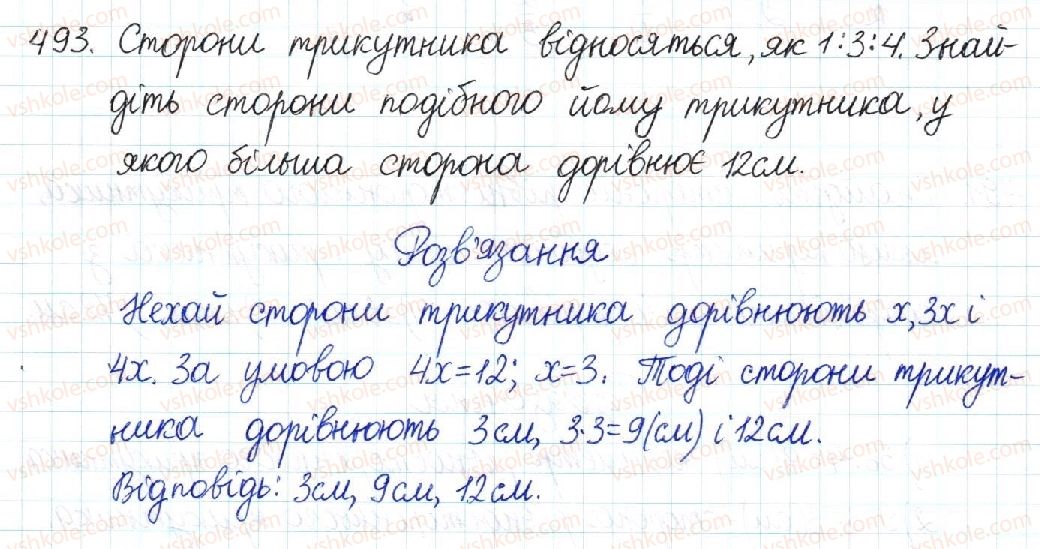 493. Сторони трикутника відносяться, як 1:3:4. Знай-
діть сторони подібного йому трикутника, у
якого більша сторона дорівнює 12 см.
Розв'язання
Нехай сторони трикутника дорівнюють x, 3x і
4x. За умовою 4x=12; x=3. Тоді сторони трикут-
ника дорівнюють 3 см, 3·3=9(см) і 12 см.
Відповідь: 3 см, 9 см, 12 см.